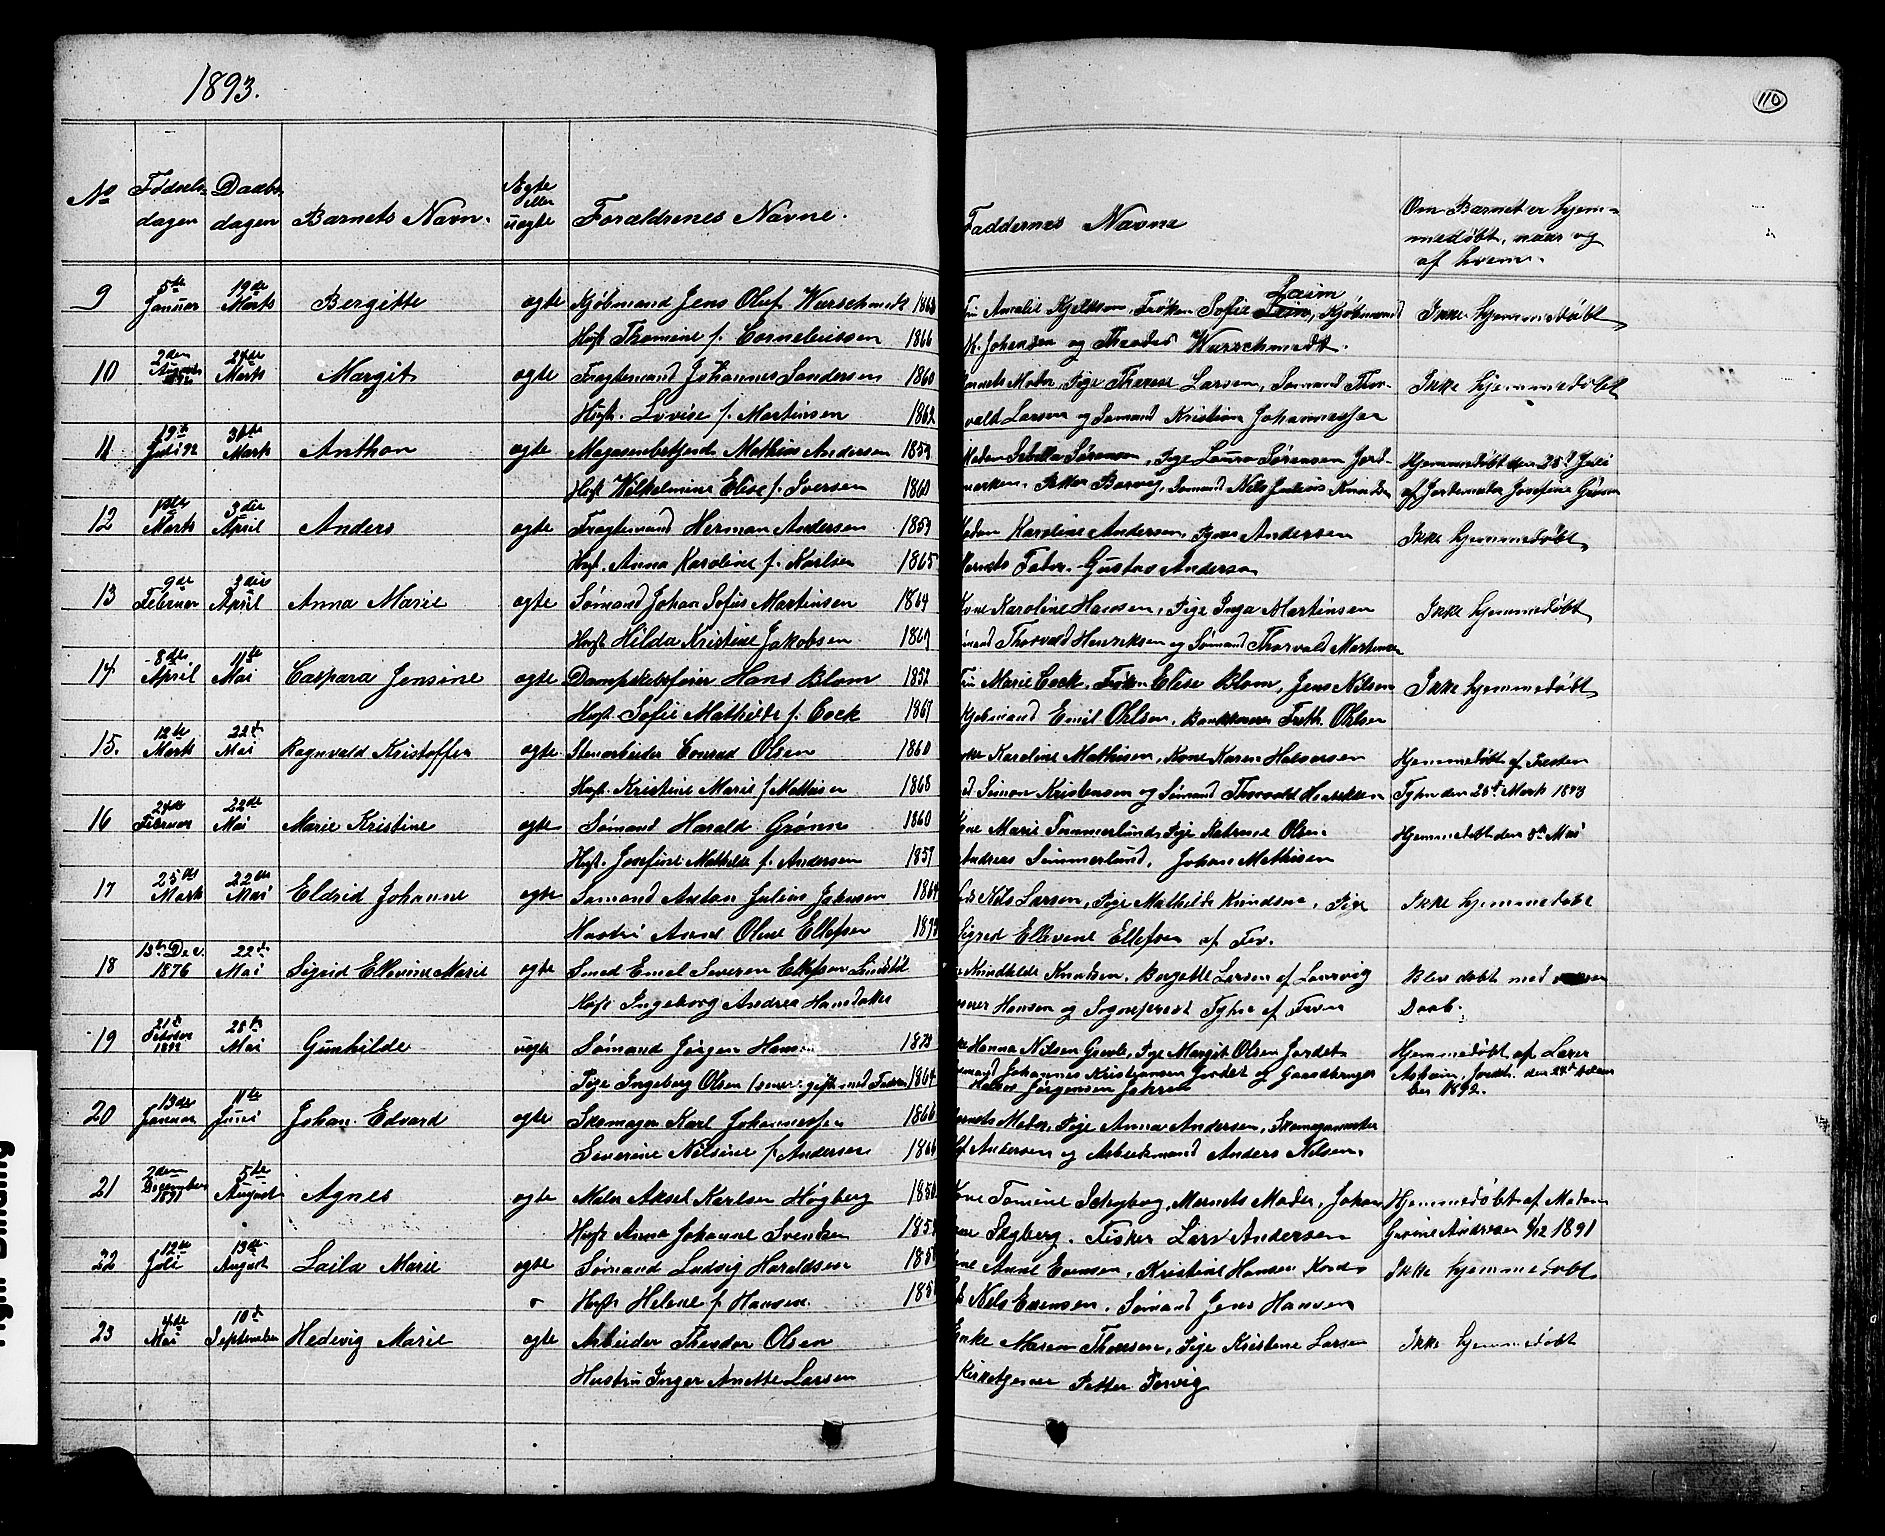 1893.
110
No Fødsels- dagen Daabs- dagen Barnets Navn. Ægte eller uægte Forældrenes Navne. Faddernes Navne Om Barnet er hjem-
medøbt, naar og
af hvem.
9 5te Januar 19de Marts Bergitte ægte Kjøbmand Jens Oluf Warschmedt 1863 Amalie Kjeldsen, Frøken Sofie Laim, Kjøbmand Ikke hjemmedøbt
Hust Thomine f. Corneliussen 1866 Johansen og Theodor Warschmedt.
10 2den August 1892 24de Marts Margit ægte Fragtemand Johannes Sandersen 1860 Barnets Moder, Pige Therese Larsen, Sømand Thor- Ikke hjemmedøbt
Hust. Lovise f. Martinsen 1862 vald Larsen og Sømand Kristian Johannessen
11 19de Juli 92 31te Marts Anthon ægte Magasinbetjent Mathias Andersen 1859 Madam Sørensen, Pige Laura Sørensen Hjemmedøbt den 25de Juli
Hust Wilhelmine Elise f. Iversen 1860 Petter Barvig, Sømand Nils Julius Knudsen af Jordemoder Josefine
12 Marts 3die April Anders ægte Fragtemand Herman Andersen 1859 Madam Karoline Andersen, Andersen Ikke hjemmedøbt
Hust. Anna Karoline f. Karlsen 1865 Barnets Fader. Gustav Andersen
13 9de Februar 3die April Anna Marie ægte Sømand Johan Sofus Martinsen 1864 Kone Karoline Hansen, Pige Inga Martinsen Ikke hjemmedøbt
Hust Hilda Kristine Jakobsen 1869 Thorvald Henriksen og Sømand Thorvald Martinsen
14 8de April 11te Mai Caspara Jensine ægte Dampskibsfører Hans Blom 1852 Marie Cock, Frøken Elise Blom, Jens Nilsen Ikke hjemmedøbt
Hust. Sofie Mathilde f. Cock 1861 Kjøbmand Emil Ohlsen, Fredh. Ohlsen
15. 12te Marts 22de Mai Ragnvald Kristoffer ægte Stenarbeider Conrad Olsen 1860 Enke Karoline Mathisen, Kone Karen Halvorsen Hjemmedøbt af Presten
Hust. Kristine Marie f Mathisen 1868 Simon Kristensen og Sømand Thorvald Henriksen Tyhn den 25de Marts 1893
16 24de Februar 22de Mai Marie Kristine ægte Sømand Harald Grønn 1860 Kone Marie Tømmerlund, Pige Katrine Olsen Hjemmedøbt den 8de Mai
Hust. Josefine Mathilde f. Andersen 1857 Andreas Tømmerlund, Johan Mathisen
17 25de Marts 22de Mai Eldrid Johanne ægte Sømand Anton Julius Johnsen 1864 Nils Larsen, Pige Mathilde Knudsen, Pige Ikke hjemmedøbt
Hustru Anne Oline Ellefsen 1873 Sigrid Ellevine Ellefsen af Tjv.
18 13de Dec. 1876 22de Mai Sigrid Ellevine Marie ægte Smed Emil Severen Ellefsen Knudsen, Bergette Larsen af Laurvig Blev døbt med
Hust Ingeborg Andrea Hansdatter Hansen og Sogneprest Tyhn af Daab.
19 21de October 1892 28de Mai Gunhilde uægte Sømand Jørgen Hansen 1873 Hanna Nilsen Grevle, Pige Margit Olsen Jordet Hjemmedøbt af Lærer
Pige Ingeborg Olsen (senere gift med Faderen 1864 Johannes Kristiansen Jordet og Gaardbruger den 24de
Jørgensen 1892.
20 13de Januar 11te Juni Johan Edvard ægte Skomager Karl Johannessen 1866 Barnets Moder, Pige Anna Andersen, Skomagermester
Severine Nilsine f. Andersen 1866 Andersen og Arbeidsmand Anders Nilsen.
21 2den December 1891 5te August Agnes ægte Maler Aksel Karlsen Høgberg 1850 Kone Tomine Skyberg, Barnets Moder, Johan Hjemmedøbt af Madam
Hust Anna Johanne Svendsen Skyberg, Fisker Lars Andersen Andresen 6/12 1891
22 12te Juli 13de August Laila Marie ægte Sømand Ludvig Haraldsen Anne Evensen, Kristine Hansen Ikke hjemmedøbt
Hust Helene f. Hansen. Nils Evensen, Sømand Jens Hansen
23 4de Mai 10de September Hedevig Marie ægte Arbeider Theodor Olsen Enke Maren Thorsen, Pige Kristene Larsen Ikke hjemmedøbt
Hustru Inger Anette Larsen Kirketjener Petter Torvig